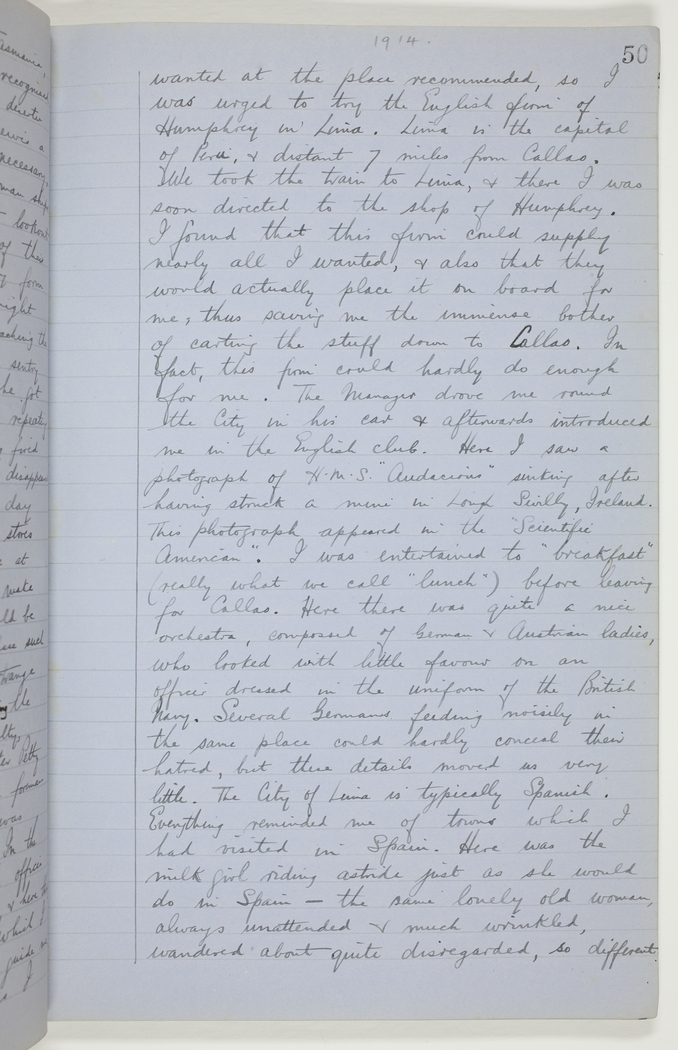 1914.
50
wanted at the place recommended, so I
was urged to try the English firm of
Humphrey in Lima. Lima is the capital
of Peru, & distant 7 miles from Callao.
We took the train to Lima, & there I was
soon directed to the shop of Humphrey.
I found that this firm could supply
nearly all I wanted, & also that they
would actually place it on board for
me, thus saving me the immense bother
of carting the stuff down to Callao. In
fact, this firm could hardly do enough
for me. The Manager drove me round
the City in his car & afterwards introduced
me in the English club. Here I saw a
photograph of H.M.S. "Audacious" sinking after
having struck a mine in Lough Swilly, Ireland.
This photograph appeared in the "Scientific
American". I was entertained to "breakfast"
(really what we call "lunch") before leaving
for Callao. Here there was quite a nice
orchestra, composed of German & Austrian ladies,
who looked with little favour on an
officer dressed in the uniform of the British
Navy. Several Germans feeding noisily in
the same place could hardly conceal their
hatred, but these details moved us very
little. The City of Lima is typically Spanish.
Everything reminded me of towns which I
had visited in Spain. Here was the
milk girl riding astride just as she would
do in Spain — the same lonely old woman,
always unattended & much wrinkled,
wandered about quite disregarded, so different